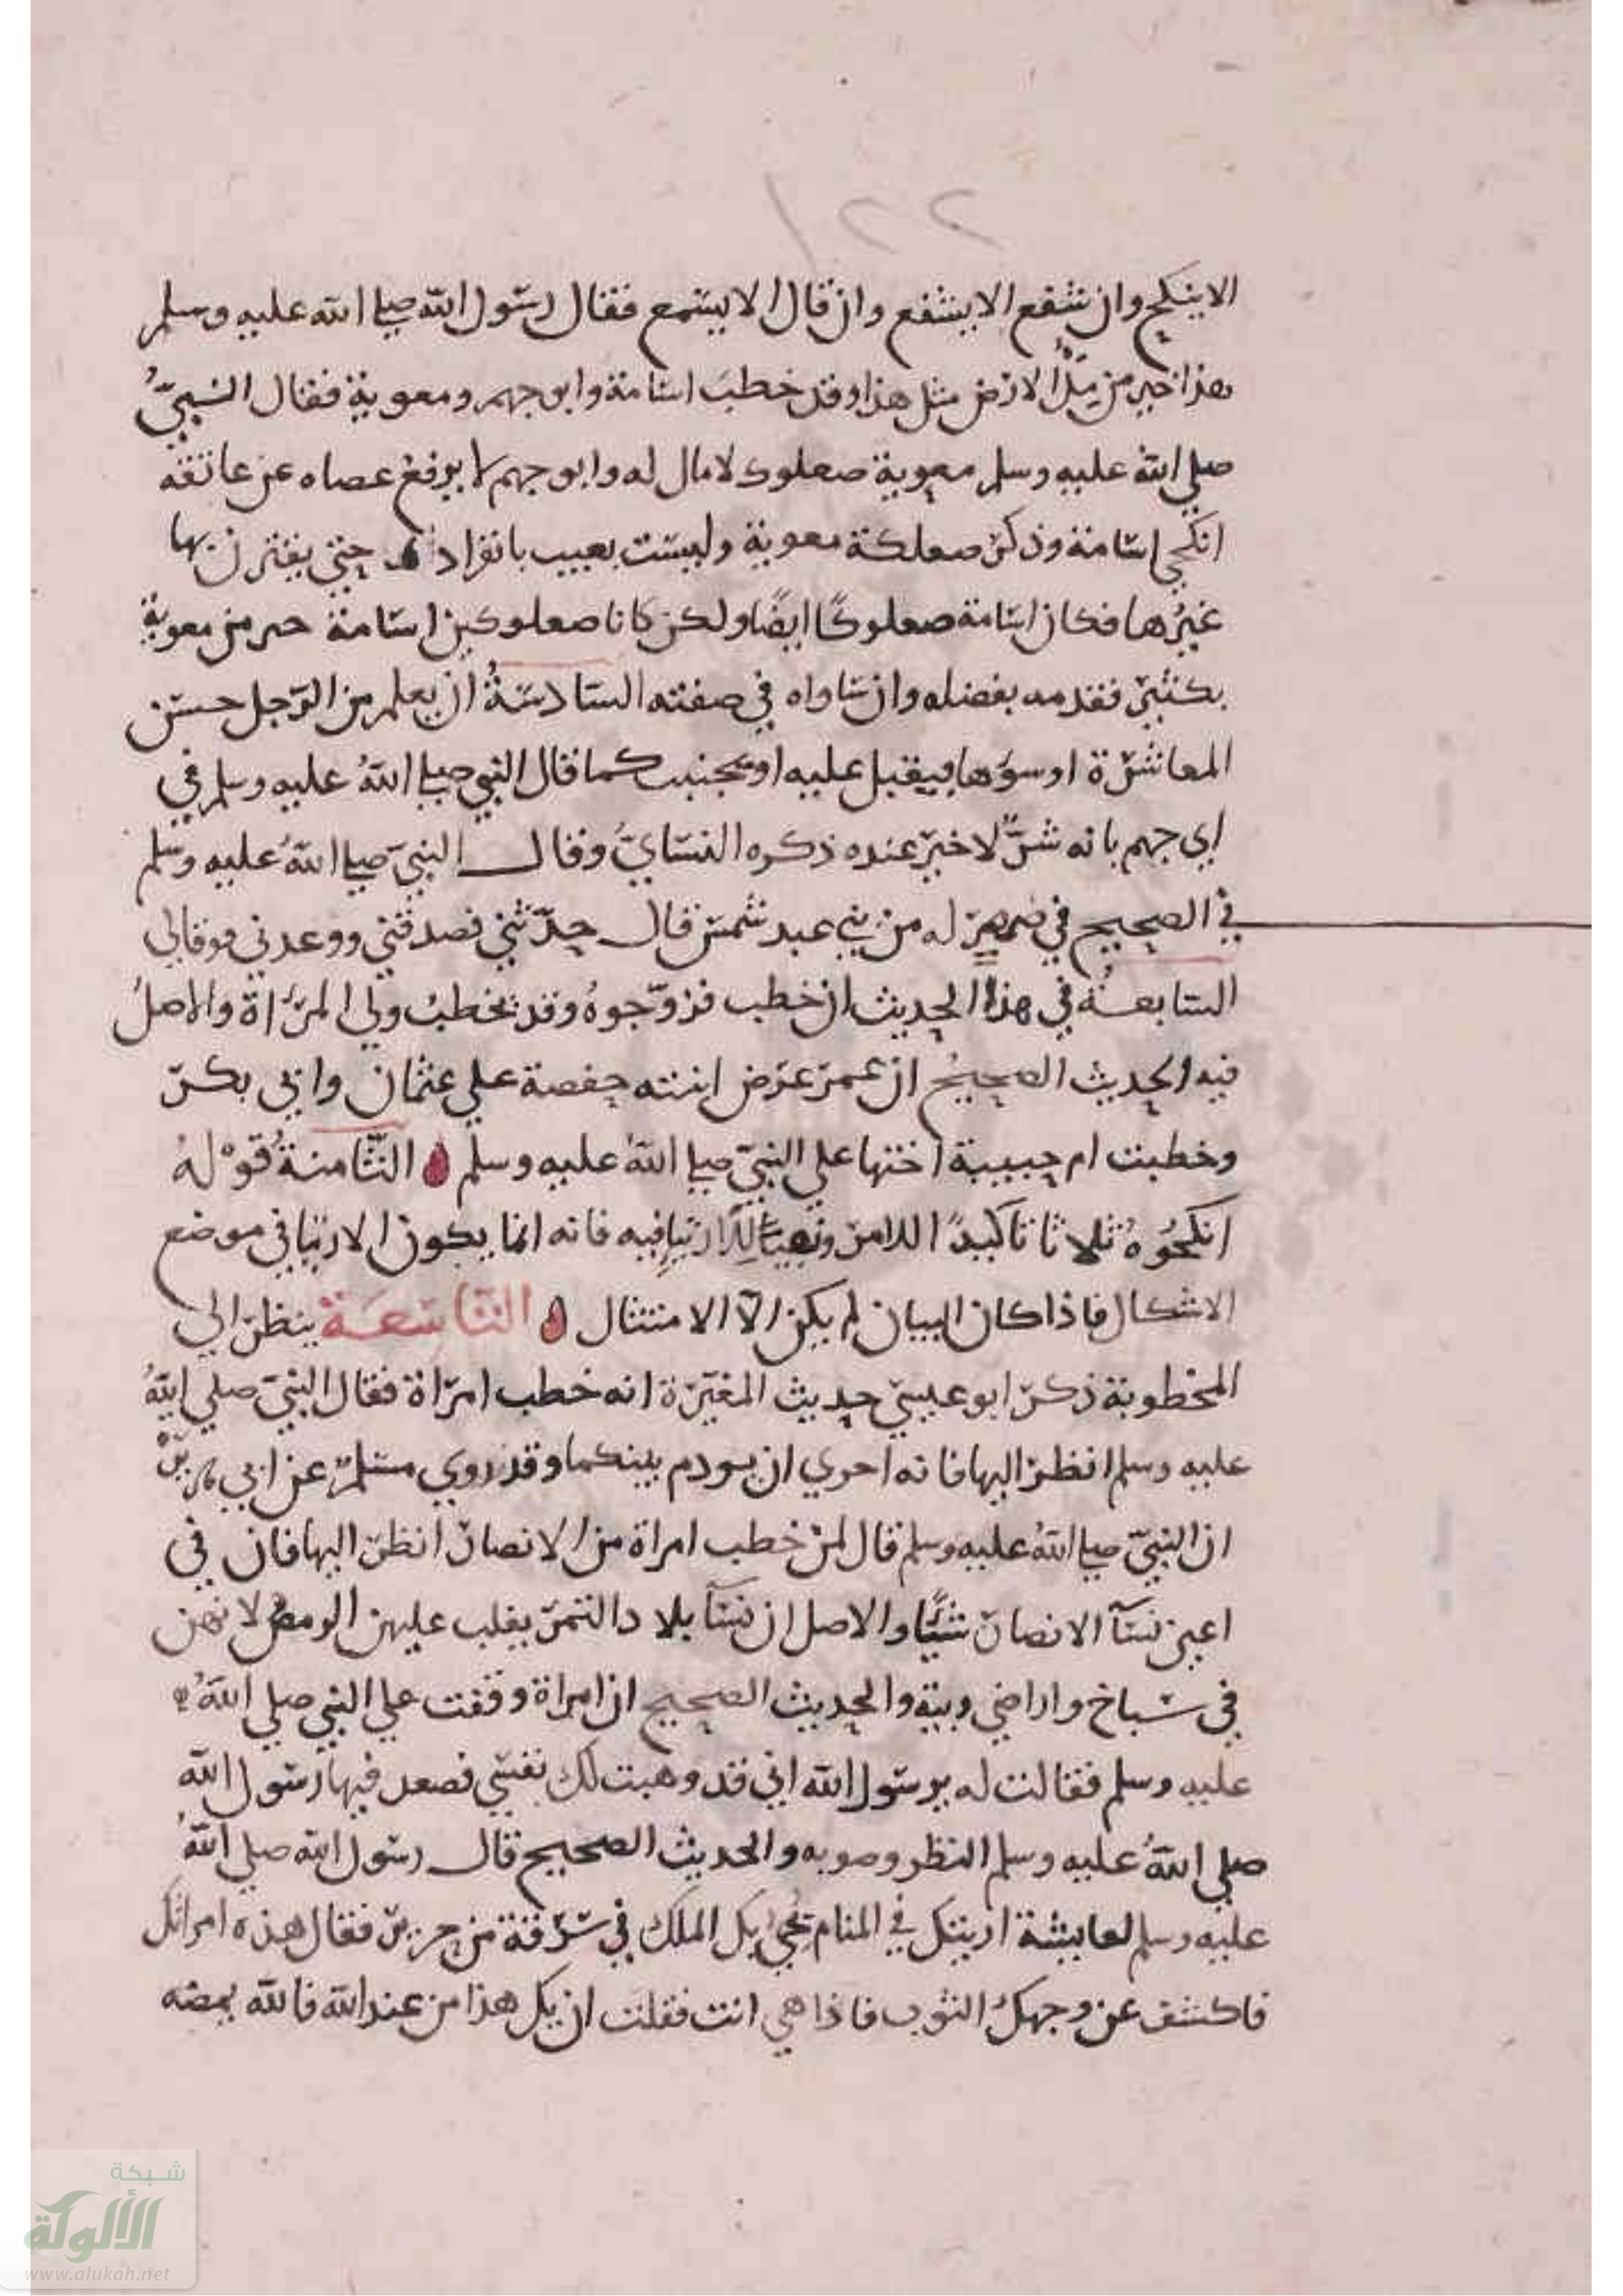 ٢٢١
الا ينكح وان شفع الا يشفع وان قال الا يسمع فقال رسول الله صلي الله عليه وسلم
هذا خير من مِلْءِ الارض مثل هذا وقد خطب اسامة وابو جهم ومعوية فقال النبيُّ
صلي الله عليه وسلم معوية صعلوك لا مال له وابو جهم لا يرفع عصاه عن عاتقه
انكحي اسامة وذكر صعلكة معوية وليست بعيب بانفراد حتي يقترن بها
غيرُها فكان اسامة صعلوكًا ايضًا ولكن كانا صعلوكين اسامة خير من معوية
بكثير فقدمه بفضله وان ساواه في صفته السادسةُ ان يعلم من الرجل حسن
المعاشرة او سوءها فيقبل عليه او يجتنب كما قال النبي صلي اللهُ عليه وسلم في
ابي جهم بانه شرٌّ لا خير عنده ذكره النسايُّ وقال النبيّ صلي اللهُ عليه وسلم
في الصحيح في صهر له من بني عبد شمس قال حدّثني فصدقني ووعدني فوفا لي
السابعةُ في هذا الحديث ان خطب فزوّجوهُ وقد يخطبُ ولي المرأة والاصلُ
فيه الحديث الصحيحُ ان عمر عرض ابنته حفصة علي عثمان وابي بكر
وخطبت ام حبيبة اختها علي النبيّ صلي اللهُ عليه وسلم الثّامنةُ قوْلهُ
انكحُوهُ ثلاثا تاكيدًا للامر ونهيًا للارتياء فيه فانه انما يكون الارتيا في موضع
الاشكال فاذا كان البيان لم يكن الّا الامتثال التاسعة ينظر الي
المخطوبة ذكر ابو عيسي حديث المغيرة انه خطب امراة فقال النبيّ صلي اللهُ
عليه وسلم انظر اليها فانه احري ان يودم بينكما وقد روي مسلمٌ عن ابي هريرة
ان النبيّ صلي اللهُ عليه وسلم قال لمن خطب امراة من الانصار انظر اليها فان في
اعين نسآ الانصار شيًا والاصل ان نسآ بلاد التمر يغلب عليهن الرمصُ لانهن
في سباخ واراضي وبية والحديث الصحيح ان امراة وقفت علي النبي صلي اللهُ
عليه وسلم فقالت له يرسول الله اني قد وهبت لك نفسي فصعد فيها رسول الله
صلي اللهُ عليه وسلم النظر وصوبه والحديث الصحيح قال رسول الله صلي اللهُ
عليه وسلم لعايشة اريتك في المنام يجيُ بك الملك في سرقة من حرير فقال هذه امراتك
فاكشف عن وجهك الثوب فاذا هي انت فقلت ان يك هذا من عند الله فالله يمضه
شبكة
الألوكة
www.alukah.net